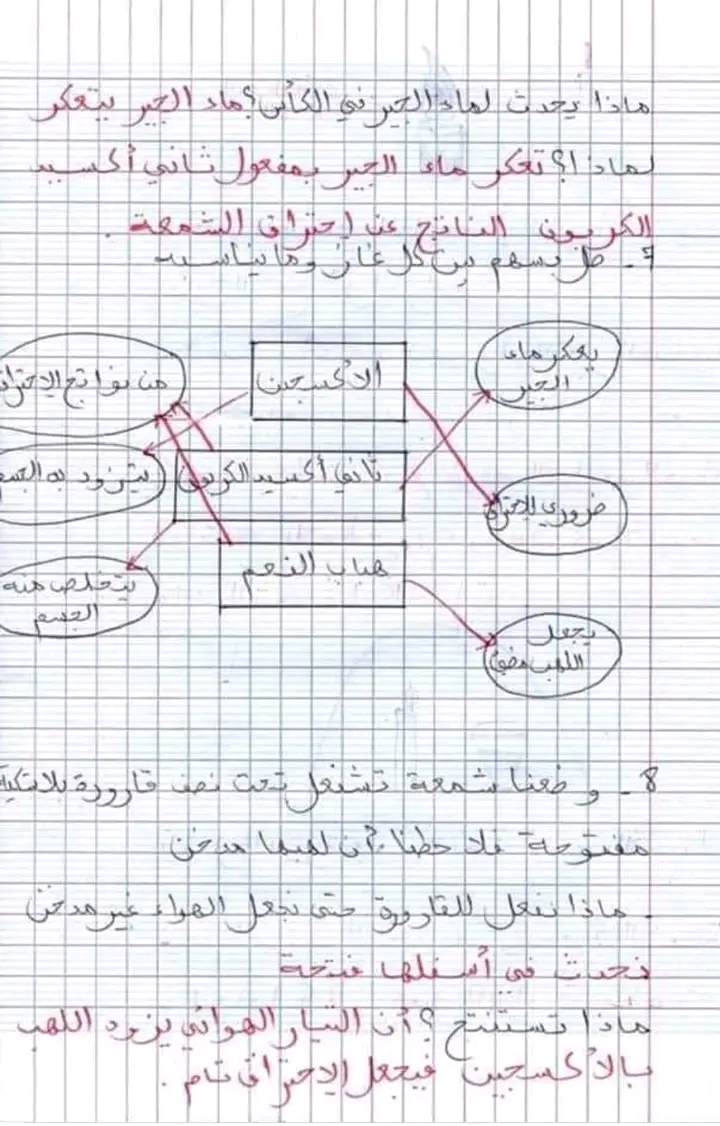 ماذا يحدث لماء الجير في الكأس؟ ماء الجير يتعكر
لماذا؟ تعكر ماء الجير بمفعول ثاني أكسيد
الكربون الناتج عن إحتراق الشمعة .
7 - صل بسهم بين كل غاز وما يناسبه
يعكر ماء
الجير
الأكسجين
من نواتج الإحتراق
ثاني أكسيد الكربون
يتزود به الجسم
ضروري للإحتراق
هباب الفحم
يتخلص منه
الجسم
يجعل
اللهب مضيئ
8 - وضعنا شمعة تشتعل تحت نصف قارورة بلاستيكية
مفتوحة فلاحظنا أن لهبها مدخن
- ماذا نفعل للقارورة حتى نجعل الهواء غير مدخن
نحدث في أسفلها فتحة
ماذا تستنتج ؟ أن التيار الهوائي يزود اللهب
بالأكسجين فيجعل الإحتراق تام .